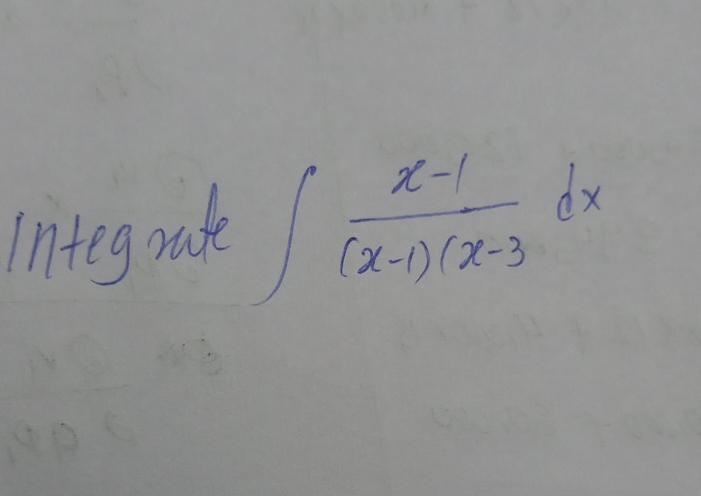 Integrate ∫ x-1 / (x-1)(x-3 dx